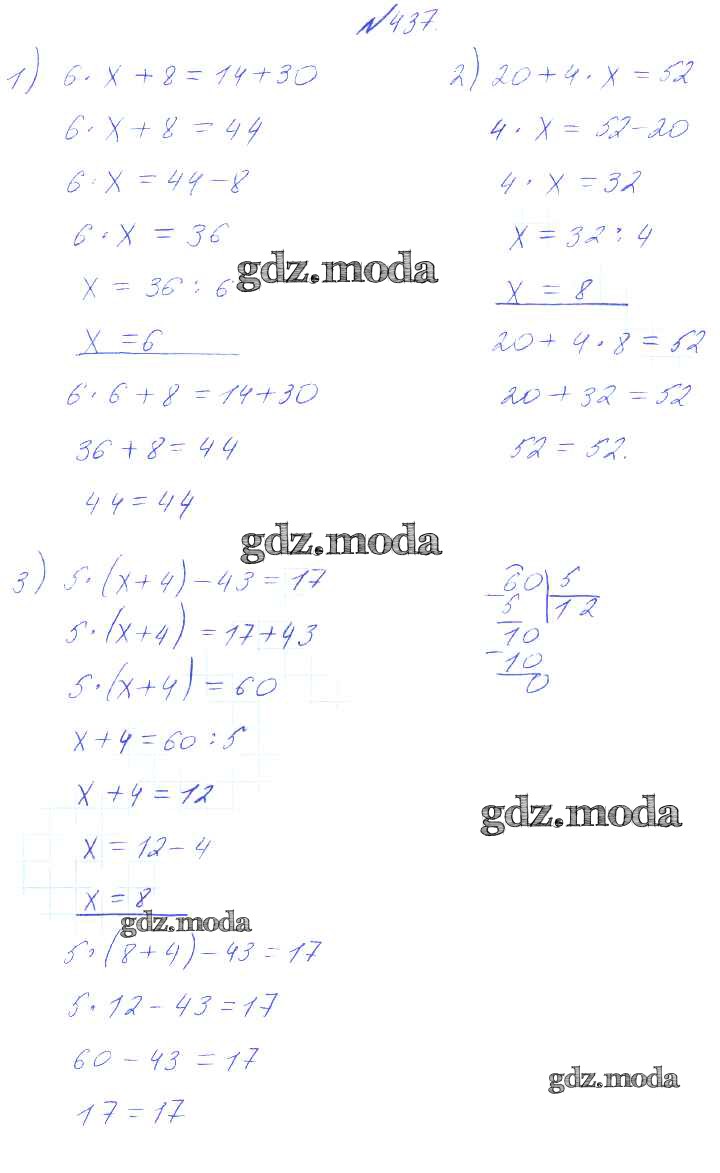 №437.
1) 6·x+8=14+30
6·x+8=44
6·x=44-8
6·x=36
x=36:6
x=6
6·6+8=14+30
36+8=44
44=44
2) 20+4·x=52
4·x=52-20
4·x=32
x=32:4
x=8
20+4·8=52
20+32=52
52=52.
gdz.moda
gdz.moda
3) 5·(x+4)-43=17
5·(x+4)=17+43
5·(x+4)=60
x+4=60:5
x+4=12
x=12-4
x=8
5·(8+4)-43=17
5·12-43=17
60-43=17
17=17
-60|5
5 12
10
-10
0
gdz.moda
gdz.moda
gdz.moda